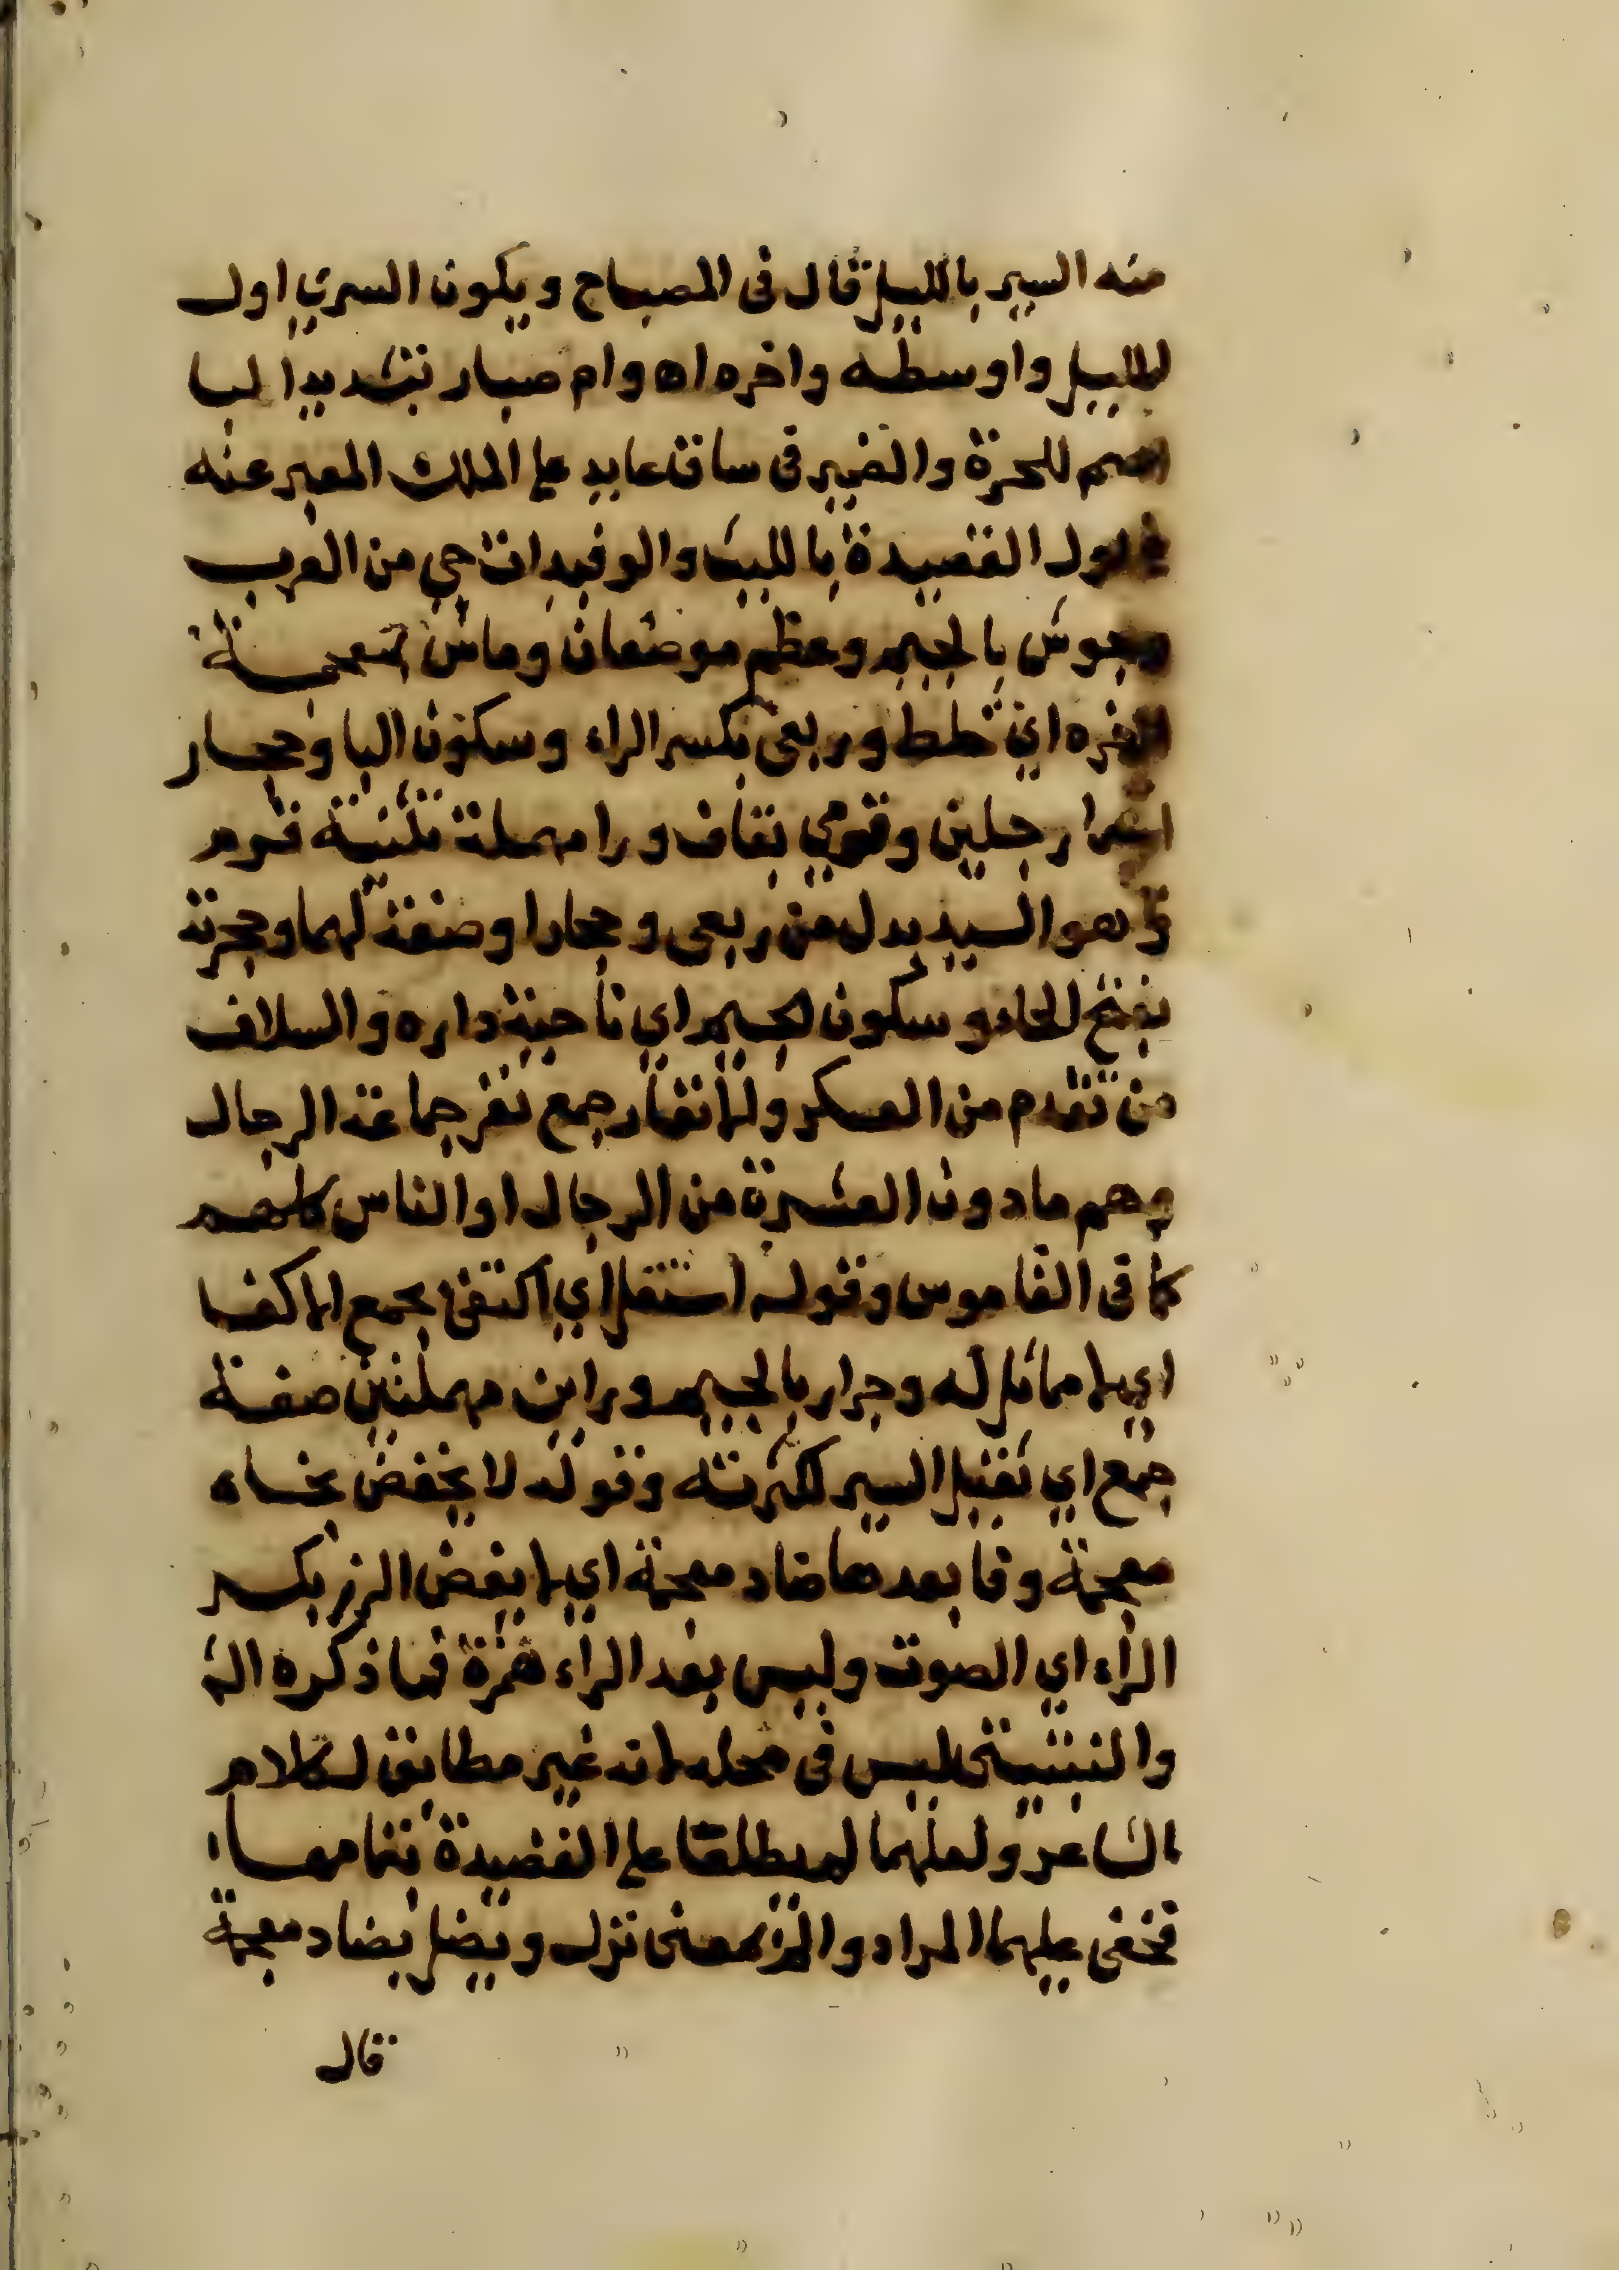 منه السير بالليل قال فى المصباح ويكون السري اول
الليل واوسطه واخره اه وام صبار بتشديد البا
اسم للحرة والضمير فى ساق عايد على الملك المعبر عنه
القصيدة بالليث والوفيدات حي من العرب
وجوش بالجيم وعظم موضعان وماش بمعجمة
اخره اي خلط وربعى بكسر الراء وسكون البا وحجار
اسما رجلين وقرمي بقاف ورا مهملة تثنية قرم
وهو السيد بدل من ربعى وحجار او صفة لهما وحجرته
بفتح الحا وسكون الجيم اي ناحية داره والسلاف
من تقدم من العسكر والانفار جمع نفر جماعة الرجال
وهم ما دون العشرة من الرجال او الناس كلهم
كما فى القاموس وقوله استقل اي اكتفى بجمع لا كفا
اي لا مماثل له وجرار بالجيم وراين مهملتين صفة
جمع اي ثقيل السير لكثرته وقوله لا يخفض بخاء
معجمة وفا بعدها ضاد معجمة اي لا يغض الرز بكسر
الراء اي الصوت وليس بعد الراء همزة فما ذكره الش
والتتيتى ليس فى محله لانه غير مطابق لكلام
الشاعر ولعلهما لم يطلعا على القصيدة بتمامها
فخفى عليهما المراد والم بمعنى نزل ويضل بضاد معجمة
قال